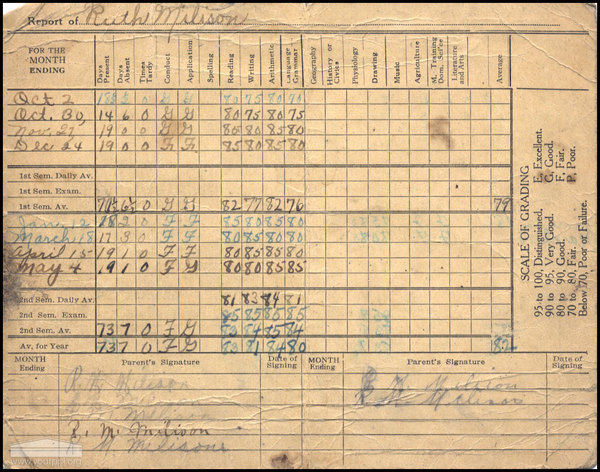 Report of Ruth Milison
FOR THE MONTH ENDING Days Present Days Absent Times Tardy Conduct Application Spelling Reading Writing Arithmetic Language Grammar Geography History or Civics Physiology Drawing Music Agriculture M. Training Dom. Sci'ce Literature and Arts Average
Oct 2 0 G G 80 75 80 70
Oct. 30, 14 6 0 G G 80 75 80 75
Nov. 27, 19 0 0 G G 80 80 85 80
Dec 24 19 0 0 F F 85 80 85 80
1st Sem. Daily Av.
1st Sem. Exam.
1st Sem. Av. 0 G G 82 77 82 76 79
2 0 F F 85 80 85 80
March 18 17 3 0 F F 80 85 80 80
April 15 19 1 0 F F 80 85 80 80
May 4 9 1 0 F G 80 80 85 85
2nd Sem. Daily Av. 81 83 84 81
2nd Sem. Exam. 85 85 85 85
2nd Sem. Av. 73 7 0 F G 83 84 85 84
Av. for Year 73 7 0 F G 83 81 84 80 82
SCALE OF GRADING
95 to 100, Distinguished.
90 to 95, Very Good.
80 to 90, Good.
70 to 80, Fair.
Below 70, Poor or Failure.
E, Excellent.
G, Good.
F, Fair.
P, Poor.
MONTH Ending Parent's Signature Date of Signing MONTH Ending Parent's Signature Date of Signing
Milison
Milison
R. M. Milison
M. Milisons
Milison
www.yourppl.org